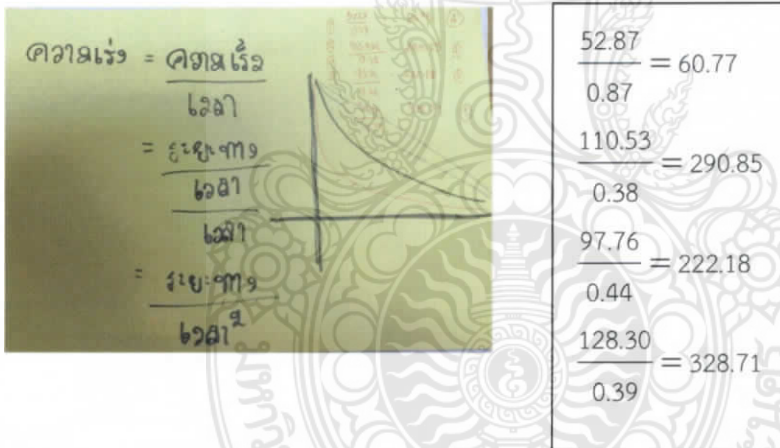 ความเร่ง = ความเร็ว
เวลา
= ระยะทาง
เวลา
เวลา
= ระยะทาง
เวลา²
52.87
0.87
= 60.77
110.53
0.38
= 290.85
97.76
0.44
= 222.18
128.30
0.39
= 328.71